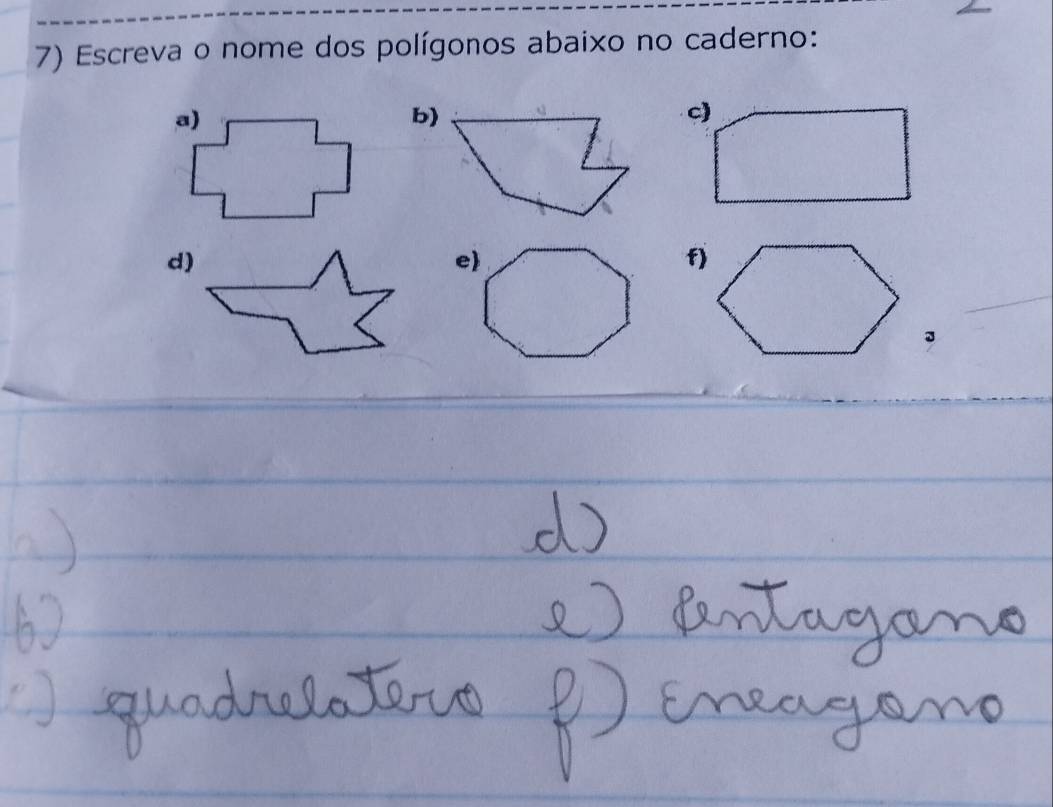 7) Escreva o nome dos polígonos abaixo no caderno:
a) b) c)
d) e) f)
a) d)
b) e) pentagono
c) quadrelatero f) eneagono